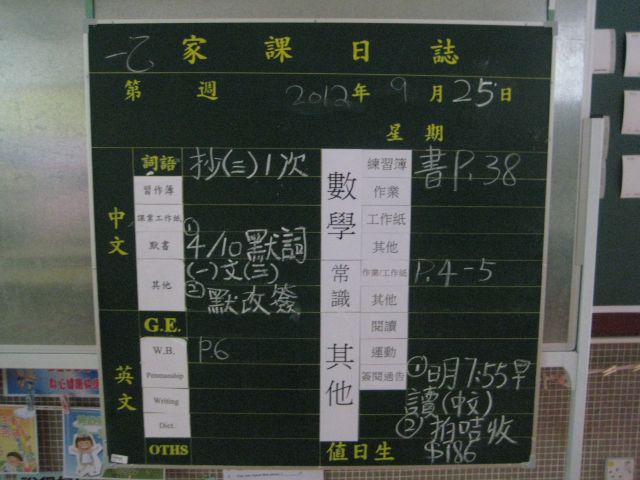 一乙 家課日誌
第 週 2012年 9月25日
星期
中文
詞語 抄(三)1次
習作簿
課業工作紙
默書 ①4/10默詞
(一)文(三)
其他 ②默改簽
英文
G.E.
W.B. P.6
Penmanship
Writing
Dict.
OTHS
數學
練習簿 書P.38
作業
工作紙
其他
常識
作業/工作紙 P.4-5
其他
其他
閱讀
運動
簽閱通告 ①明7:55早
讀(中文)
②拍咭收
$186
值日生